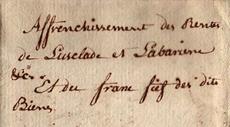 Affrenchissement des Rentes
de Lusclade et Labariere
&c.
Et du franc fief des dits
Biens